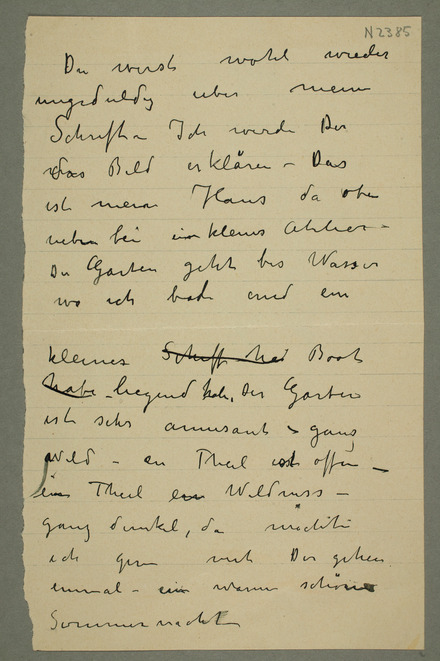 N2385
Du wirst wohl wieder
ungeduldig über meine
Schrift – Ich werde Dir
das Bild erklären – Das
ist mein Haus da oben
neben bei ein kleines Atelier –
Der Garten geht bis Wasser
wo ich bade und ein
kleines Schiff hei Boot
habe – liegend hab, Der Garten
ist sehr amusant – ganz
wild – ein Theil ist offen –
ein Theil ein Wildniss –
ganz dunkel, da möchte
ich gern mit Dir gehen
einmal – ein warme schöne
Sommernacht